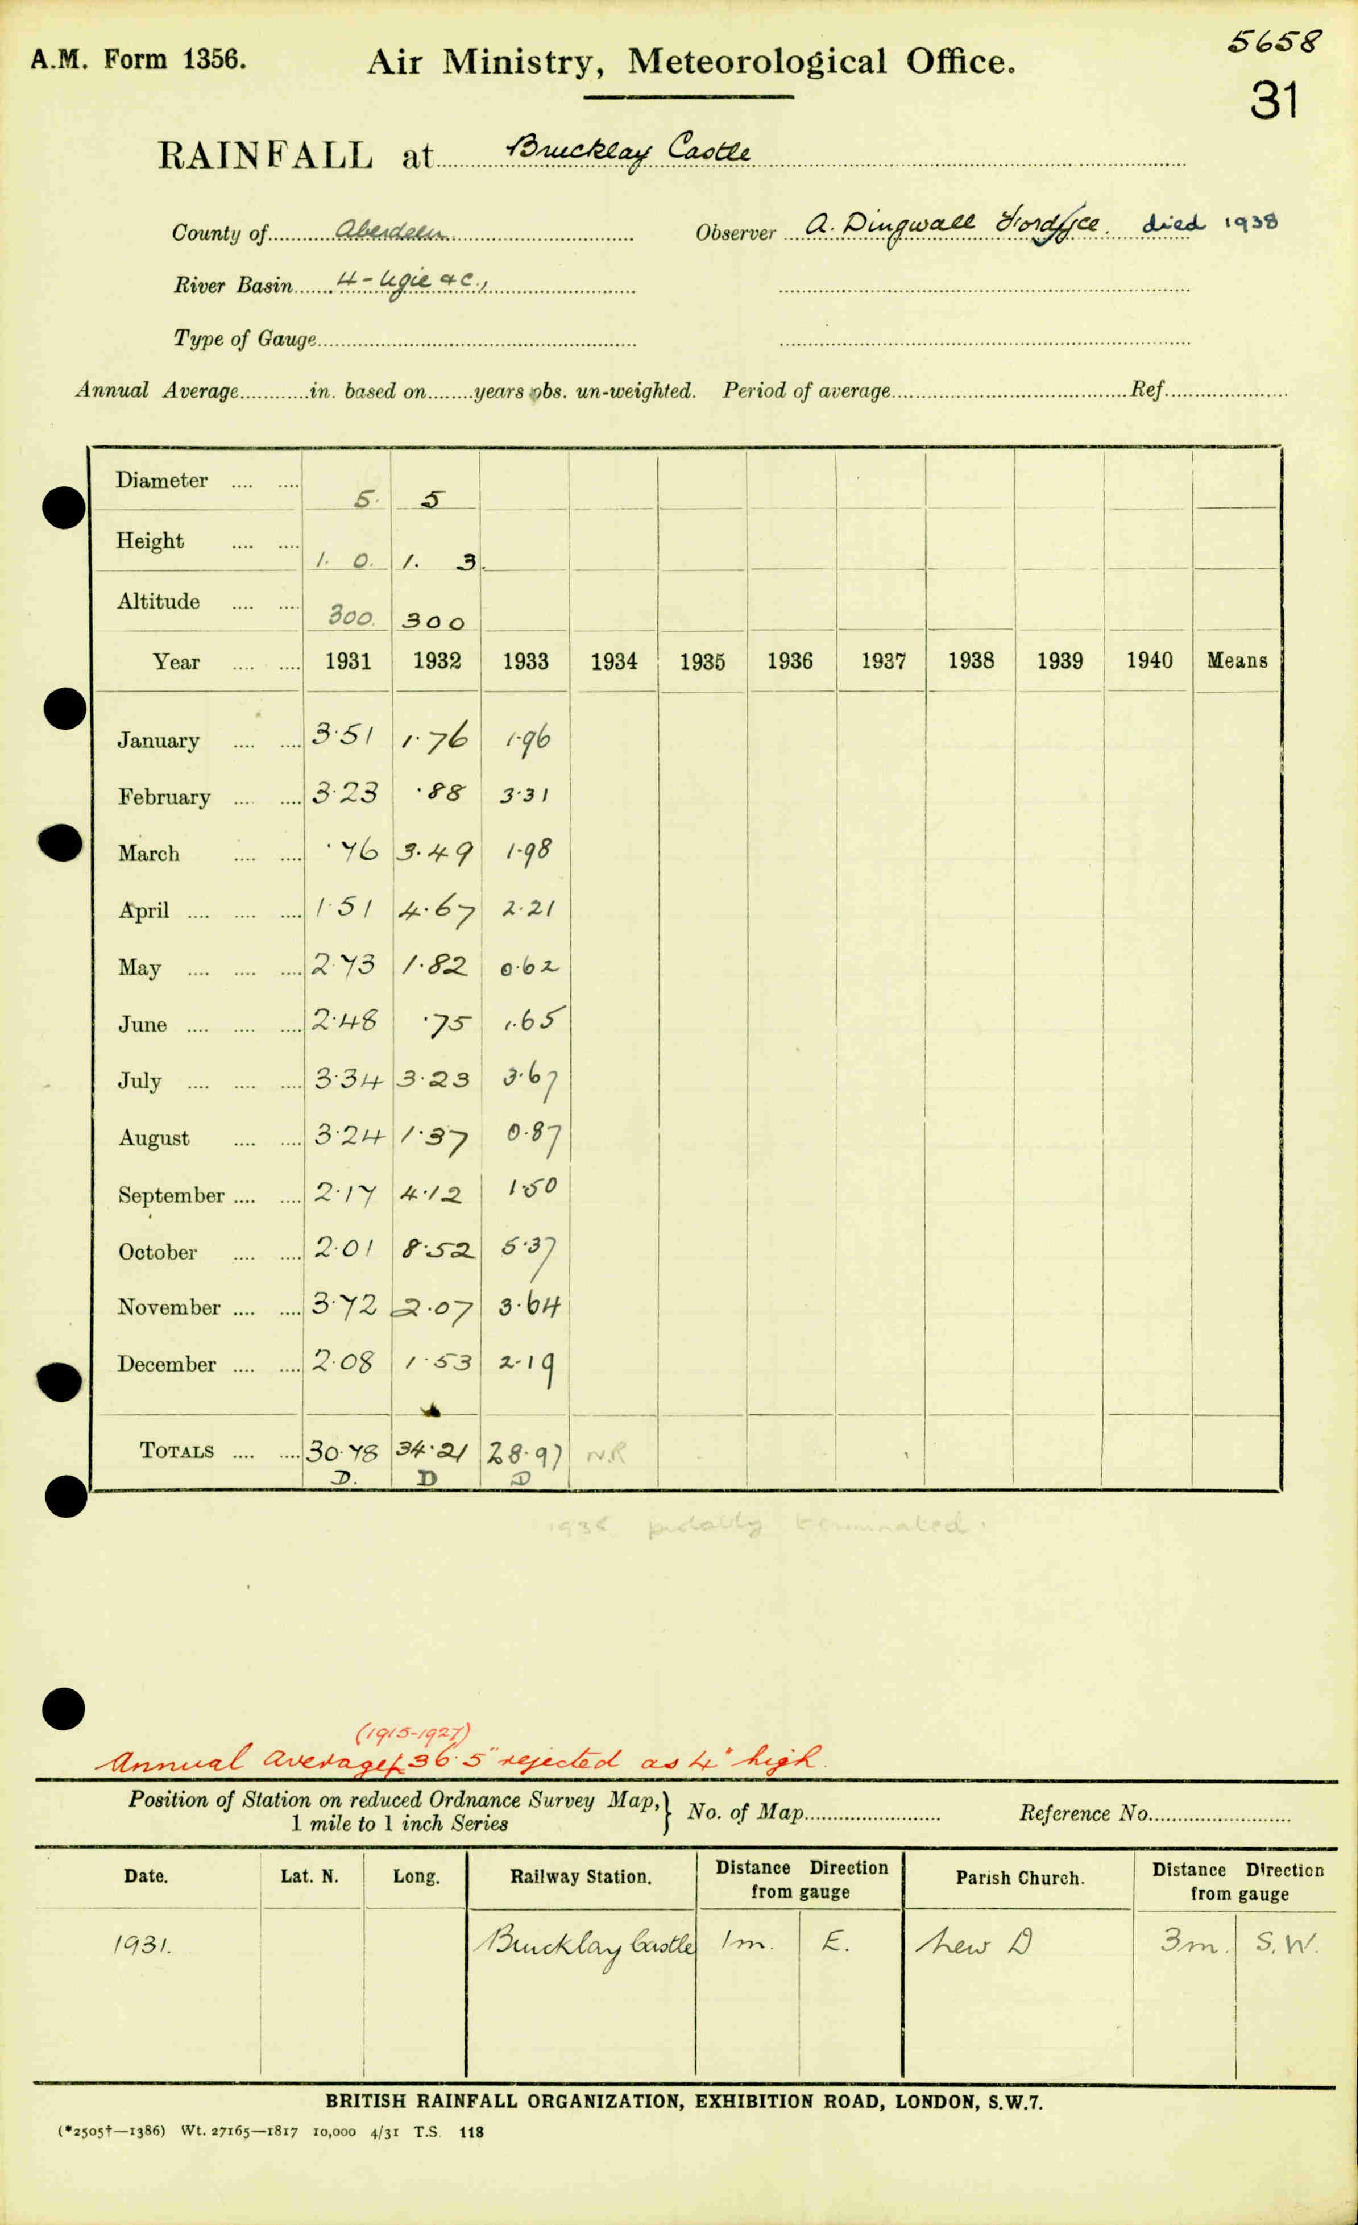 5658
A.M. Form 1356. Air Ministry, Meteorological Office.
31
RAINFALL at Brucklay Castle
County of Aberdeen Observer A. Dingwall Fordyce. died 1938
River Basin 4 - Ugie &c.,
Type of Gauge
Annual Average in. based on years obs. un-weighted. Period of average Ref.
Diameter .... .... 5. 5
Height .... .... 1. 0. 1. 3
Altitude .... .... 300. 300
Year .... .... 1931 1932 1933 1934 1935 1936 1937 1938 1939 1940 Means
January .... .... 3.51 1.76 1.96
February .... .... 3.23 .88 3.31
March .... .... .76 3.49 1.98
April .... .... .... 1.51 4.67 2.21
May .... .... .... 2.73 1.82 0.62
June .... .... .... 2.48 .75 1.65
July .... .... .... 3.34 3.23 3.67
August .... .... 3.24 1.37 0.87
September .... .... 2.17 4.12 1.50
October .... .... 2.01 8.52 5.37
November .... .... 3.72 2.07 3.64
December .... .... 2.08 1.53 2.19
TOTALS .... .... 30.78 34.21 28.97 N.R
D. D D
probably terminated.
(1915-1927)
Annual average 36.5" rejected as 4" high.
Position of Station on reduced Ordnance Survey Map, } No. of Map Reference No.
1 mile to 1 inch Series
Date. Lat. N. Long. Railway Station. Distance Direction from gauge Parish Church. Distance Direction from gauge
1931. Brucklay Castle 1m. E. New D 3m. S.W.
BRITISH RAINFALL ORGANIZATION, EXHIBITION ROAD, LONDON, S.W.7.
(*2505†—1386) Wt. 27165—1817 10,000 4/31 T.S. 118